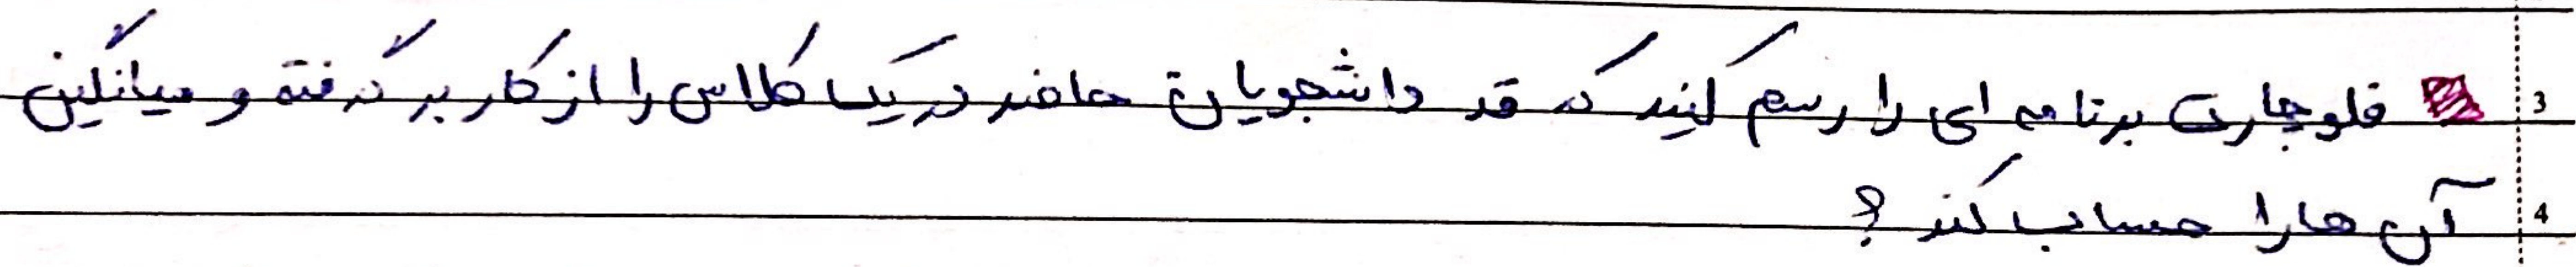 3 فلوچارت برنامه ای را رسم کنید که قد دانشجویان حاضر در یک کلاس را از کاربر گرفته و میانگین
4 آن ها را حساب کند ؟